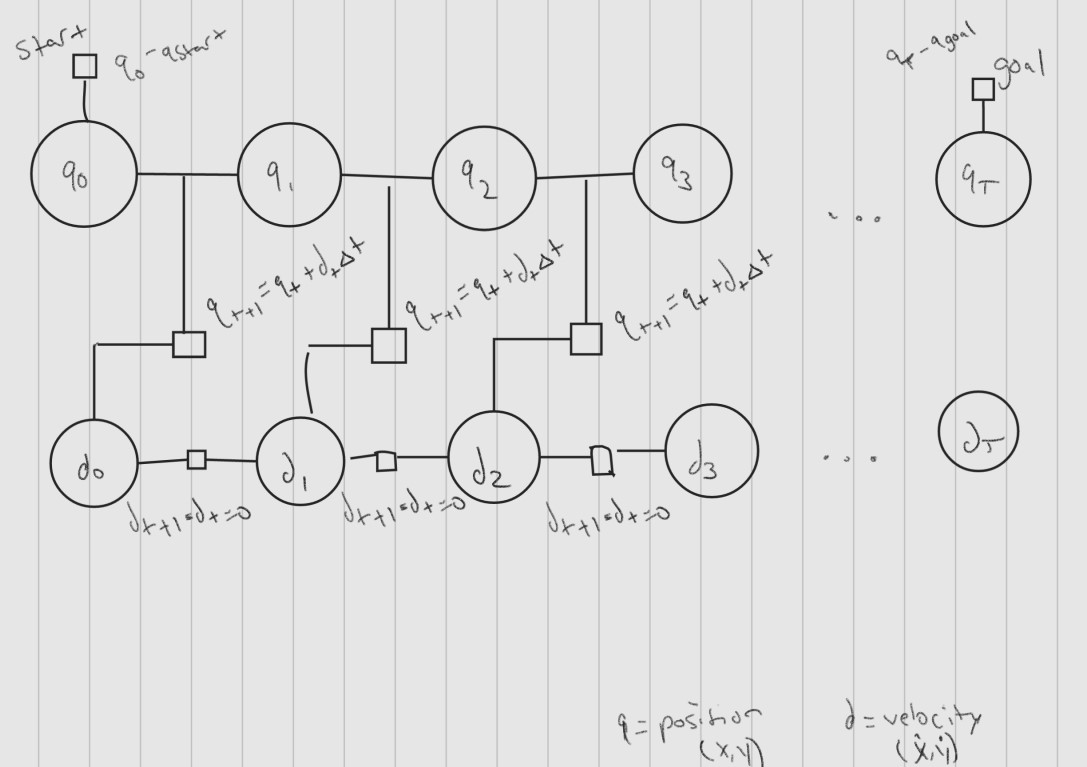 start
q₀-qstart
qₜ-qgoal
goal
q₀
q₁
q₂
q₃
...
q_T
qₜ₊₁=qₜ+dₜΔt
qₜ₊₁=qₜ+dₜΔt
qₜ₊₁=qₜ+dₜΔt
d₀
d₁
d₂
d₃
...
d_T
dₜ₊₁-dₜ=0
dₜ₊₁-dₜ=0
dₜ₊₁-dₜ=0
q= position
(x,y)
d=velocity
(ẋ,ẏ)